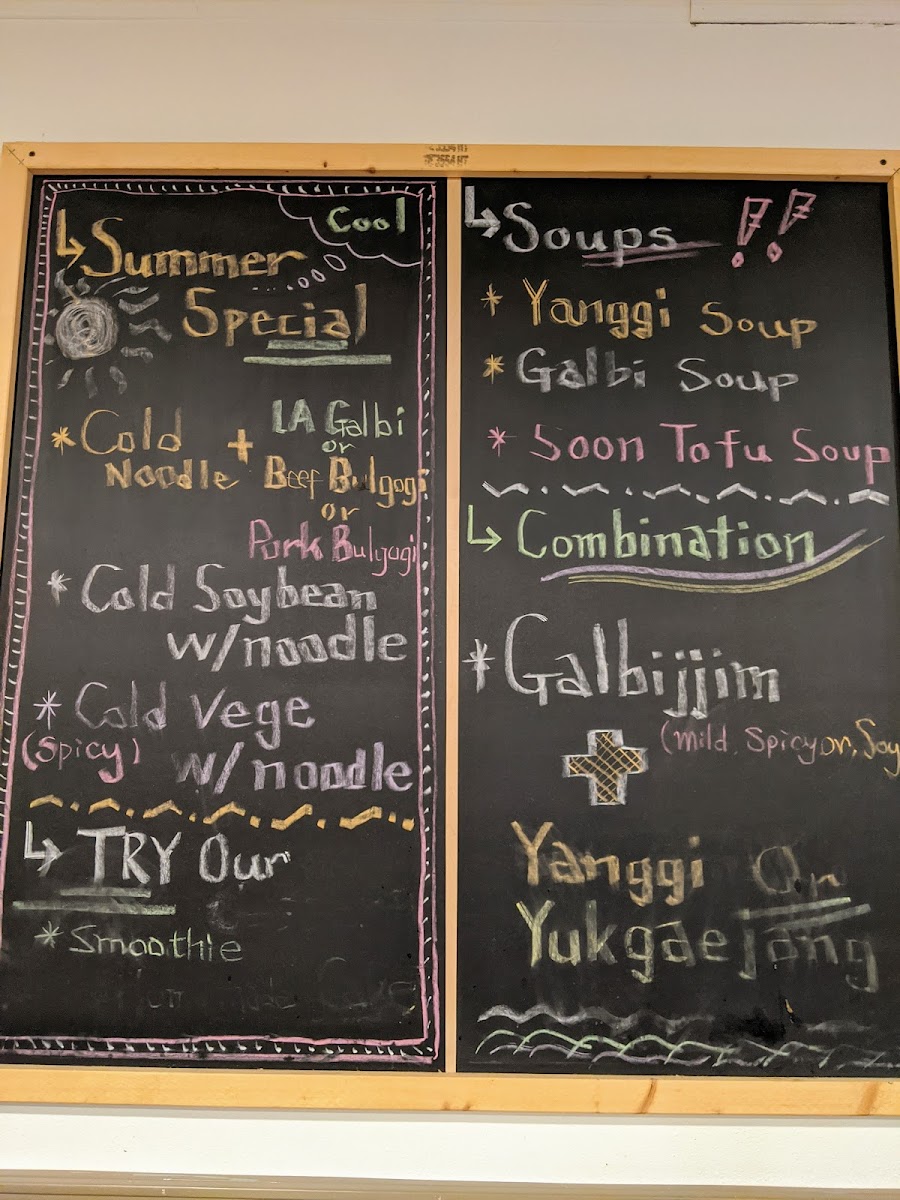 Cool
Summer
Special
* Cold + LA Galbi
or
Noodle Beef Bulgogi
or
Pork Bulgogi
* Cold Soybean
w/noodle
* Cold Vege
(Spicy) w/noodle
TRY Our
* Smoothie
Soups !!
* Yanggi Soup
* Galbi Soup
* Soon Tofu Soup
Combination
* Galbijjim
(mild, Spicy or, Soy
+
Yanggi Or
Yukgaejang